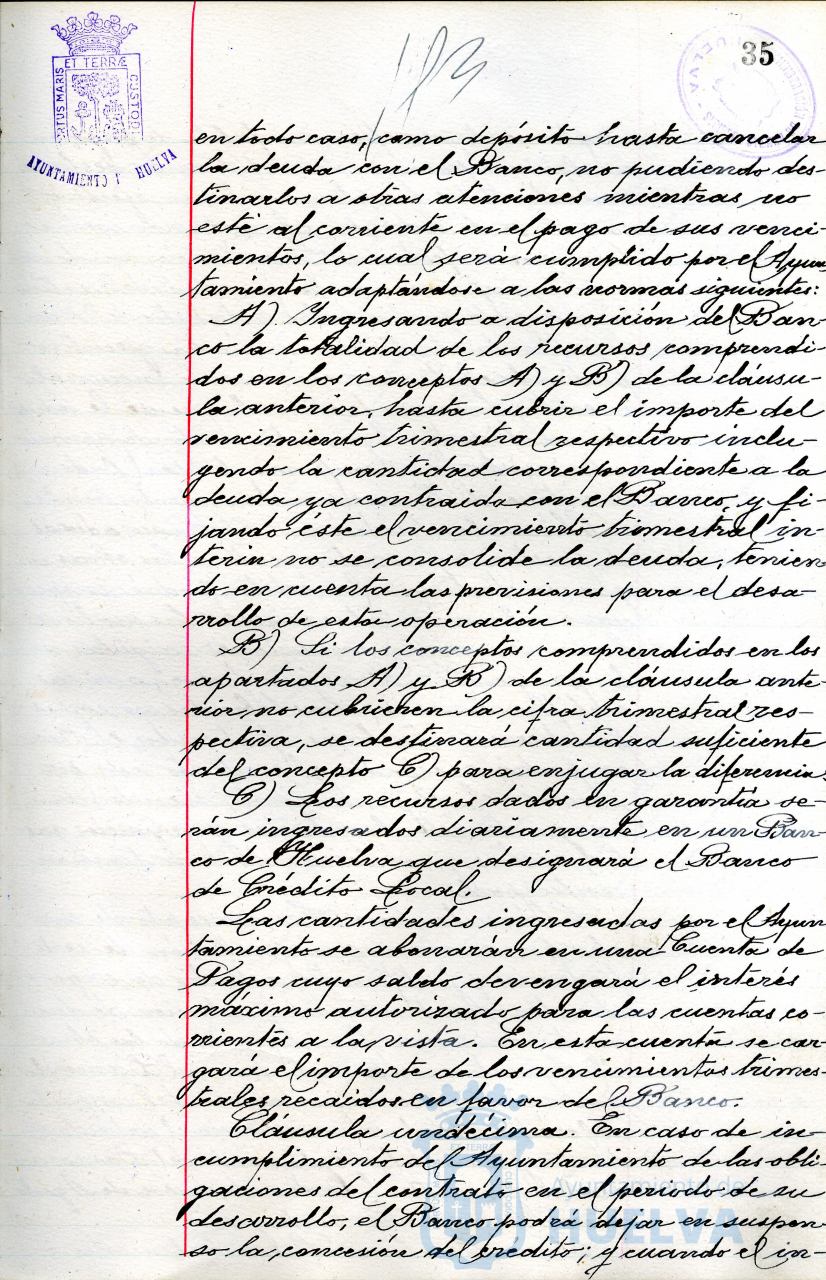 35
ET TERRÆ
CUSTODI
AYUNTAMIENTO HUELVA
en todo caso, como depósito hasta cancelar
la deuda con el Banco, no pudiendo des-
tinarlos a otras atenciones mientras no
esté al corriente en el pago de sus venci-
mientos, lo cual será cumplido por el Ayun-
tamiento adaptándose a las normas siguientes:
A) Ingresando a disposición del Ban-
co la totalidad de los recursos comprendi-
dos en los conceptos A) y B) de la cláusu-
la anterior, hasta cubrir el importe del
vencimiento trimestral respectivo inclu-
yendo la cantidad correspondiente a la
deuda ya contraida con el Banco, y fi-
jando éste el vencimiento trimestral in-
terin no se consolide la deuda, tenien-
do en cuenta las previsiones para el desa-
rrollo de esta operación.
B) Si los conceptos comprendidos en los
apartados A) y B) de la cláusula ante-
rior no cubrieren la cifra trimestral res-
pectiva, se destinará cantidad suficiente
del concepto C) para enjugar la diferencia.
C) Los recursos dados en garantía se-
rán ingresados diariamente en un Ban-
co de Huelva que designará el Banco
de Crédito Local.
Las cantidades ingresadas por el Ayun
tamiento se abonarán en una Cuenta de
Pagos cuyo saldo devengará el interés
máximo autorizado para las cuentas co-
rrientes a la vista. En esta cuenta se car-
gará el importe de los vencimientos trimes-
trales recaidos en favor del Banco.
Cláusula undécima. En caso de in-
cumplimiento del Ayuntamiento de las obli-
gaciones del contrato en el periodo de su
desarrollo, el Banco podrá dejar en suspen-
so la concesión del credito; y cuando el in-
Ayuntamiento de
HUELVA